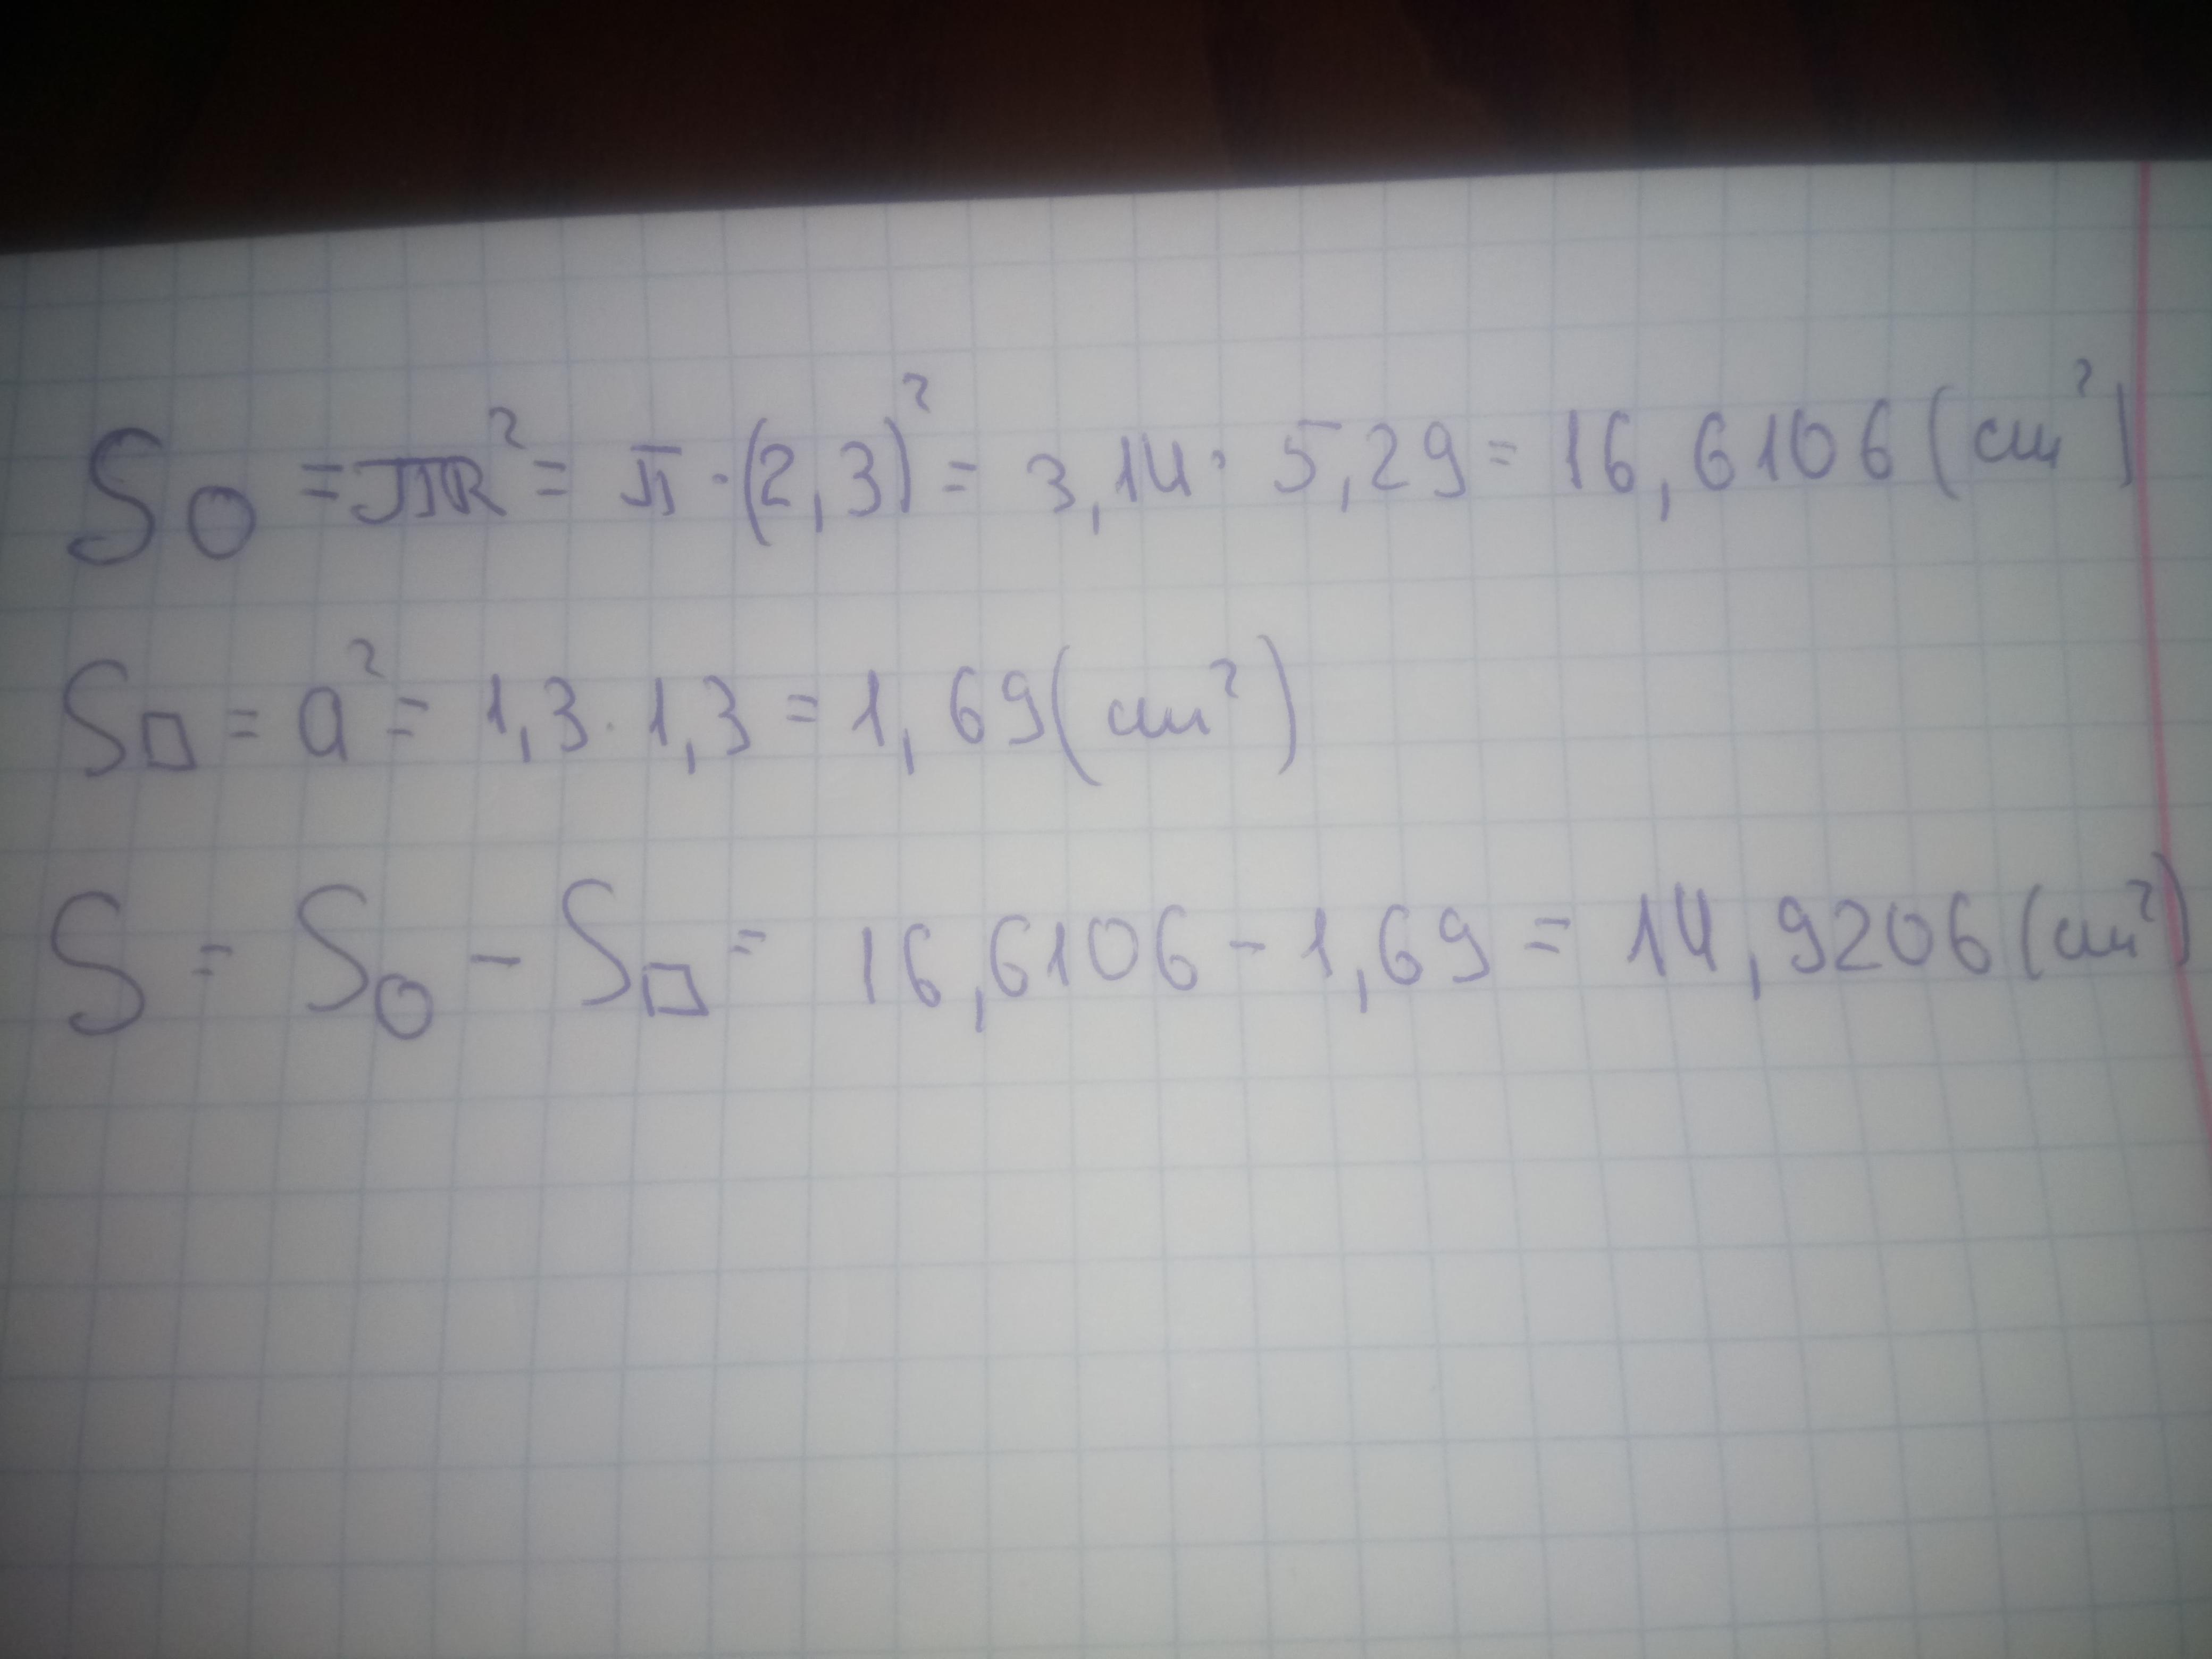 S○ = πR² = π · (2,3)² = 3,14 · 5,29 = 16,6106 (см²)
S□ = a² = 1,3 · 1,3 = 1,69 (см²)
S = S○ - S□ = 16,6106 - 1,69 = 14,9206 (см²)